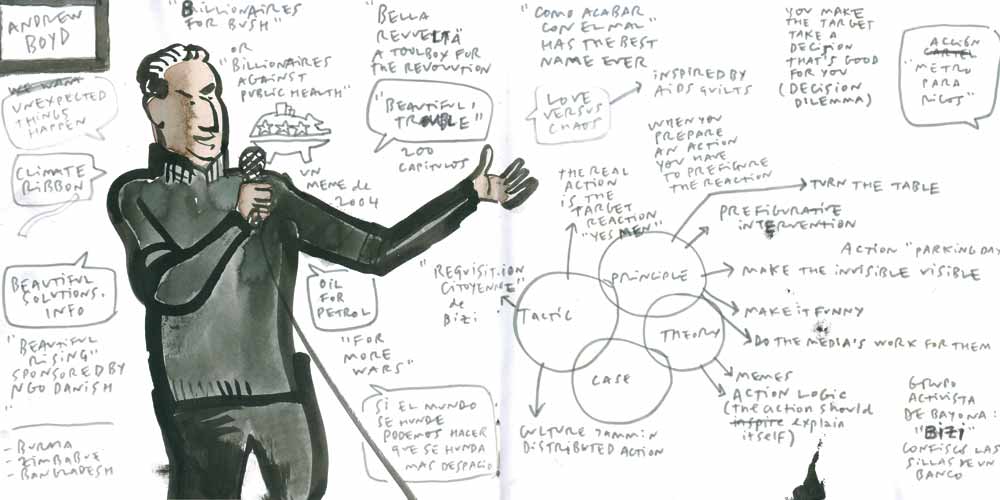 ANDREW
BOYD
"BILLIONAIRES
FOR BUSH"
OR
"BILLIONAIRES
AGAINST
PUBLIC HEALTH"
UN
MEME de
2004
WE WANT
UNEXPECTED
THINGS
HAPPEN
CLIMATE
RIBBON
BEAUTIFUL
SOLUTIONS.
INFO
"BEAUTIFUL
RISING"
SPONSORED BY
NGO DANISH
"
- BURMA
- ZIMBABUE
- BANGLADESH
"BELLA
REVUELTA
A TOOLBOX FOR
THE REVOLUTION
"BEAUTIFUL
TROUBLE"
200
CAPITULOS
OIL
FOR
PETROL
"FOR
MORE
WARS"
SI EL MUNDO
SE HUNDE
PODEMOS HACER
QUE SE HUNDA
MAS DESPACIO
"COMO ACABAR
CON EL MAL"
HAS THE BEST
NAME EVER
LOVE
VERSUS
CHAOS
INSPIRED BY
AIDS QUILTS
YOU MAKE
THE TARGET
TAKE A
DECISION
THAT'S GOOD
FOR YOU
(DECISION
DILEMMA)
ACCIÓN
CARTEL
"METRO
PARA
RICOS"
WHEN YOU
PREPARE
AN ACTION
YOU HAVE
TO PREFIGURE
THE REACTION
THE REAL
ACTION
IS THE
TARGET
REACTION
"YES MEN"
"REQUISITION
CITOYENNE"
de
BIZI
TACTIC
PRINCIPLE
THEORY
CASE
TURN THE TABLE
PREFIGURATIVE
INTERVENTION
ACTION "PARKING DAY
MAKE THE INVISIBLE VISIBLE
MAKE IT FUNNY
DO THE MEDIA'S WORK FOR THEM
MEMES
ACTION LOGIC
(the action should
inspire explain
itself)
CULTURE JAMMIN
DISTRIBUTED ACTION
GRUPO
ACTIVISTA
DE BAYONA:
"BIZI"
CONFISCA LAS
SILLAS DE UN
BANCO